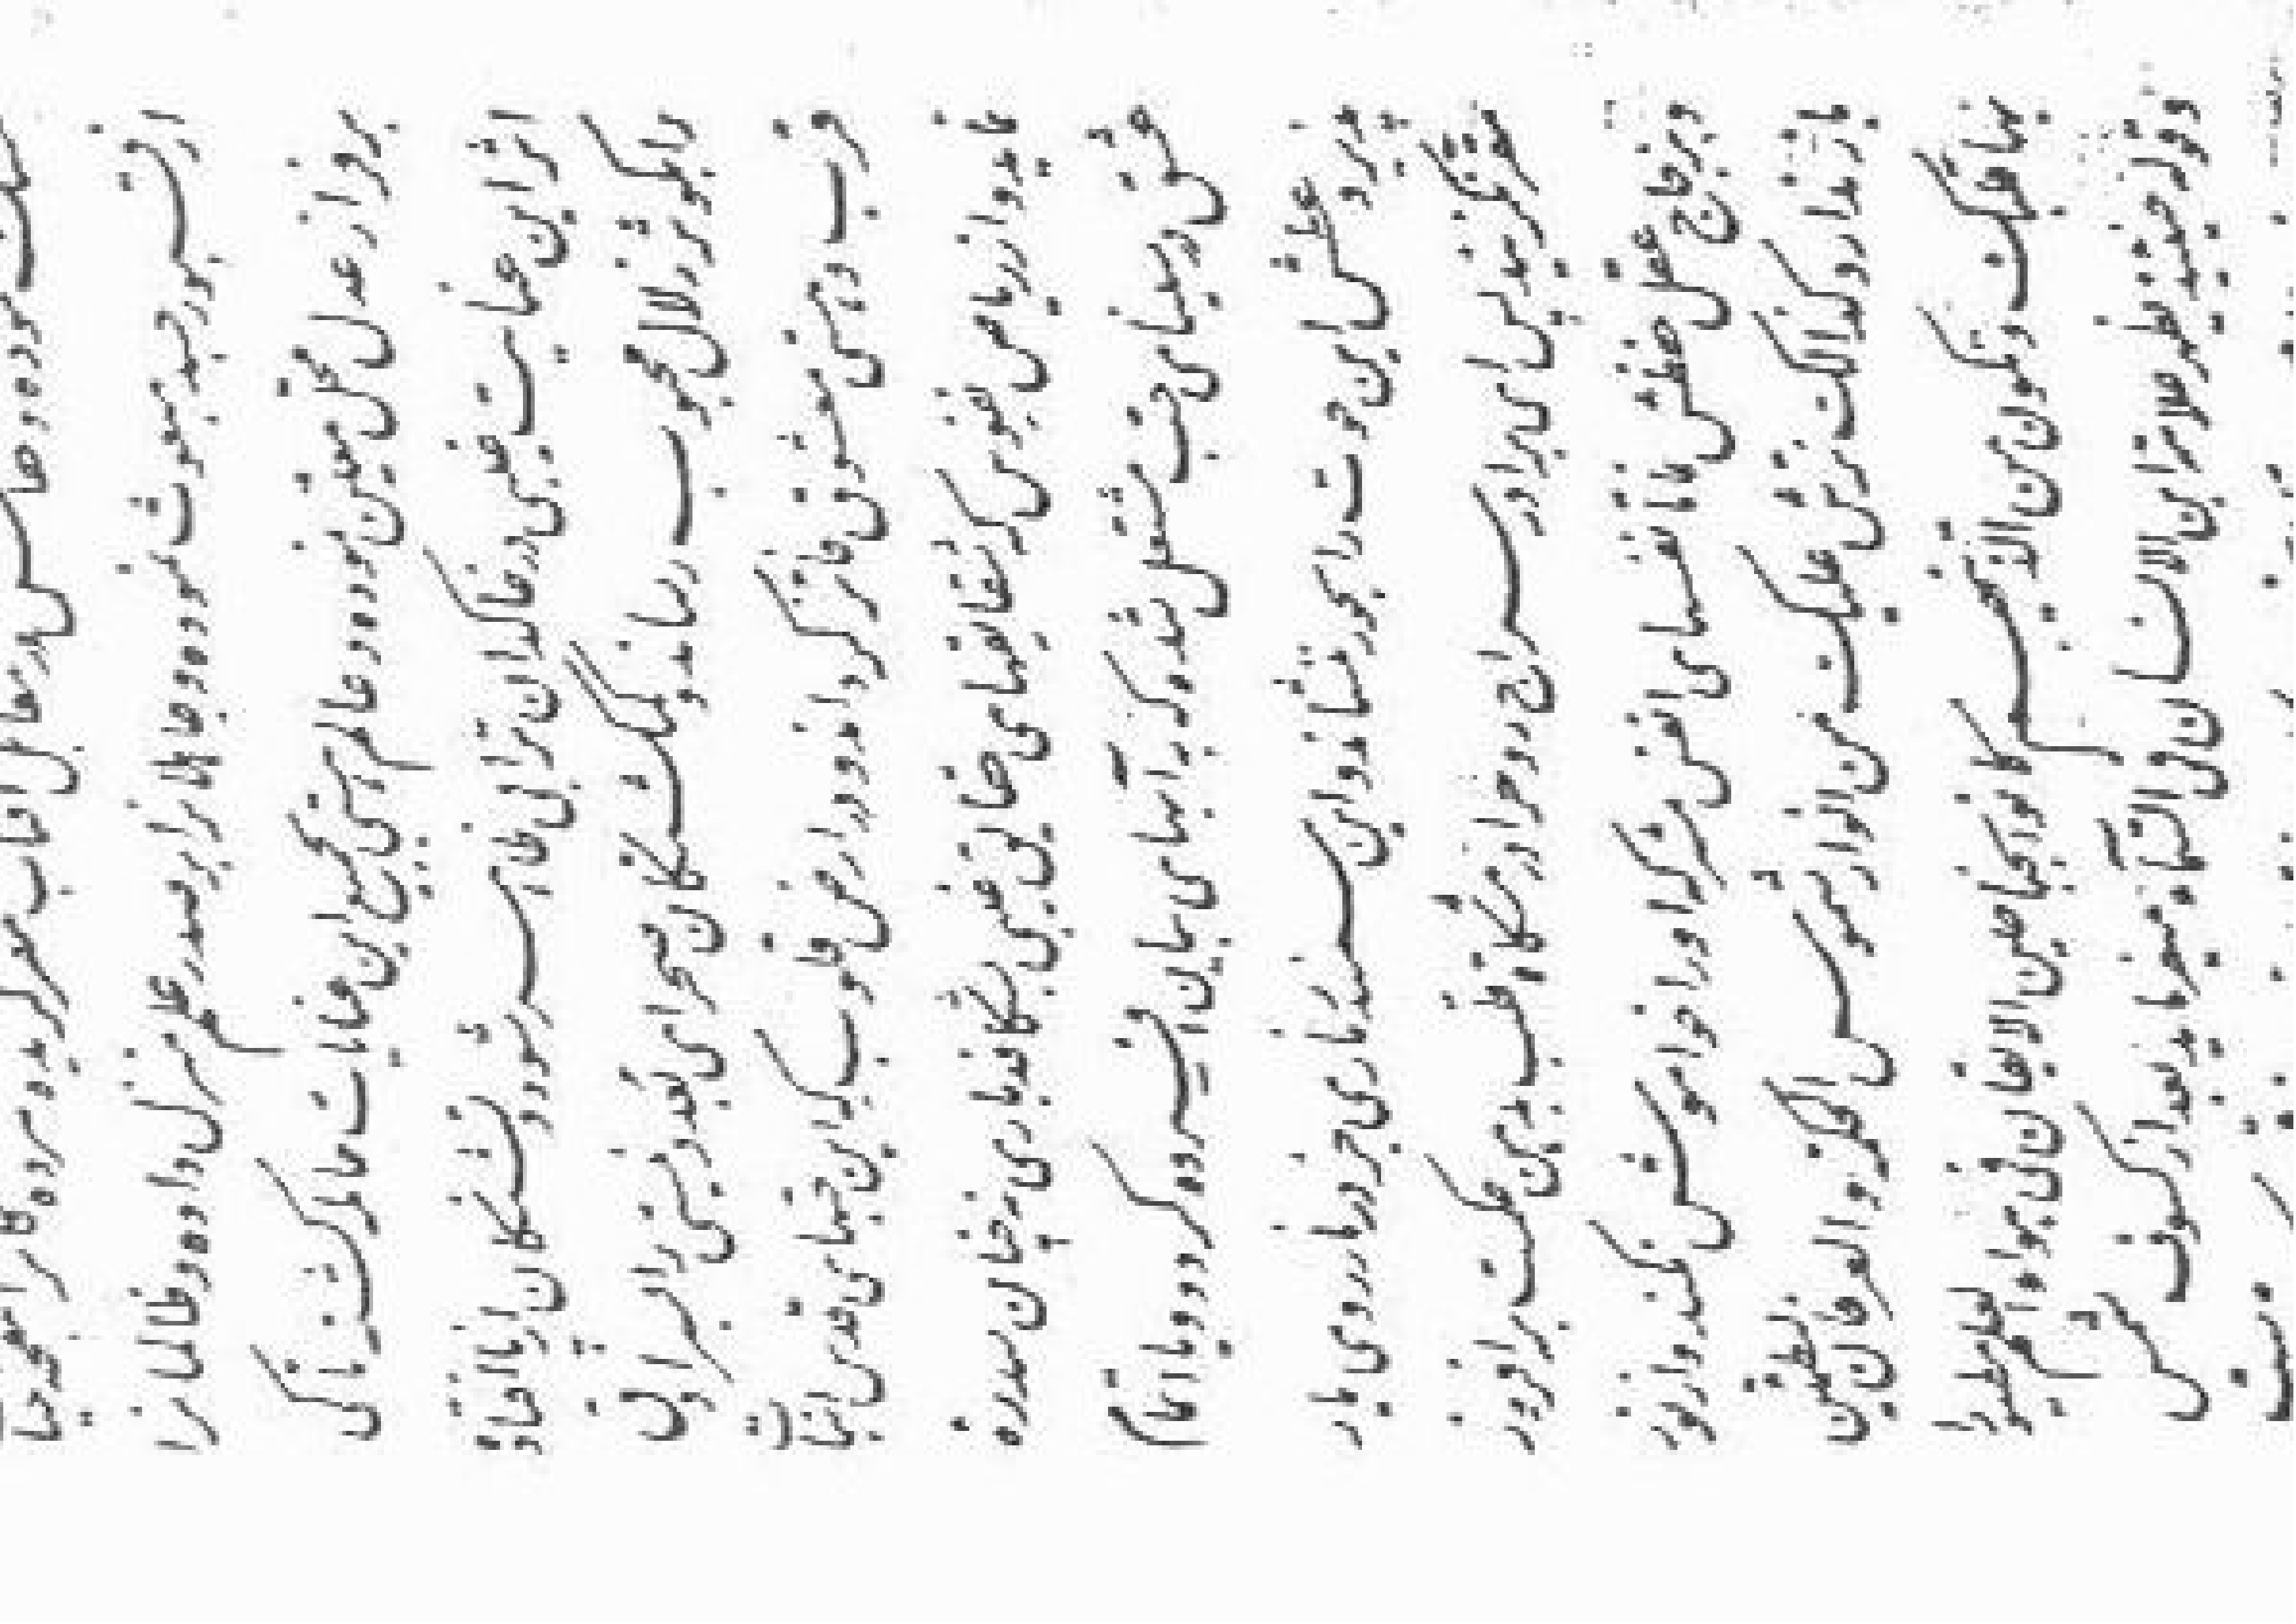 از قبر جسد مبعوث نموده و جاهلان را بر صدر علم منزل داده و ظالمان را
بر فراز عدل محل معین فرموده و عالم هستی بجمیع این عنایات حامله گشته تا کی
اثر این عنایت غیبی در خاکدان ترابی ظاهر شود و تشنگان از پا افتاده
را بکوثر زلال محبوب رساند و گمگشتگان صحرای بعد و نیستی را بسرادق
قرب و هستی معشوق فائز گرداند و در ارض قلوب که این حبهای قدس انبات
نماید و از ریاض نفوس که شقایقهای حقایق غیبی بشکفاند باری نه چنان سدره
عشق در سینای حب مشتعل شده که به آبهای بیان افسرده گردد و یا اتمام
پذیرد عطش این حوت را بحور ننشاند و این سمندر ناری جز در نار روی یار
مقر نگزیند پس ای برادر سراج روح را در مشکاة قلب بدهن حکمت برافروز
و بزجاج عقل حفظش نما تا نفسهای انفس مشرکه او را خاموش نکند و از نور
باز ندارد و کذلک نرشح علیک من انوار شموس الحکمة و العرفان لیطمئن
بها قلبک و تکون من الذینهم کانوا بجناحین الایقان فی هواء العلم مطیرا
و قوله حینئذ یظهر علامة ابن الانسان فی السماء میفرماید بعد از کسوف شمس